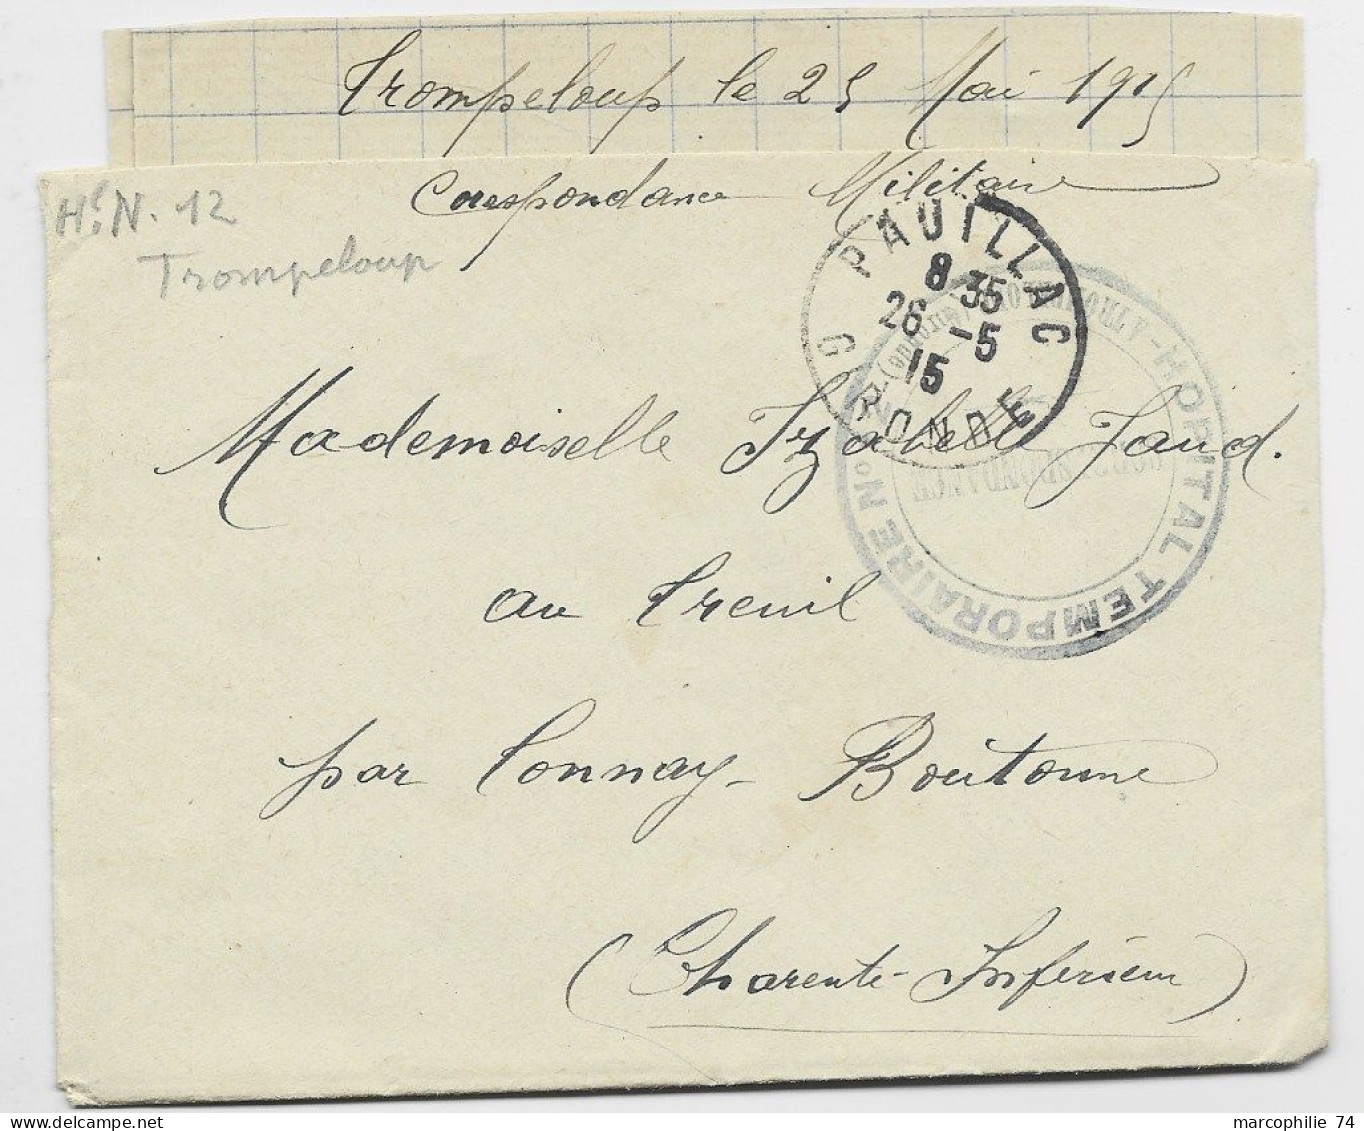 Trompeloup le 25 Mai 1915
Correspondance Militaire
Hal N. 12
Trompeloup
PAUILLAC
8 35
26 -5
15
GIRONDE
HOPITAL TEMPORAIRE No 12
(GIRONDE)
CORRESPONDANCE
Mademoiselle Izabelle Jaud.
au Treuil
par Tonnay-Boutonne
(Charente-Inférieure)
marcophilie 74